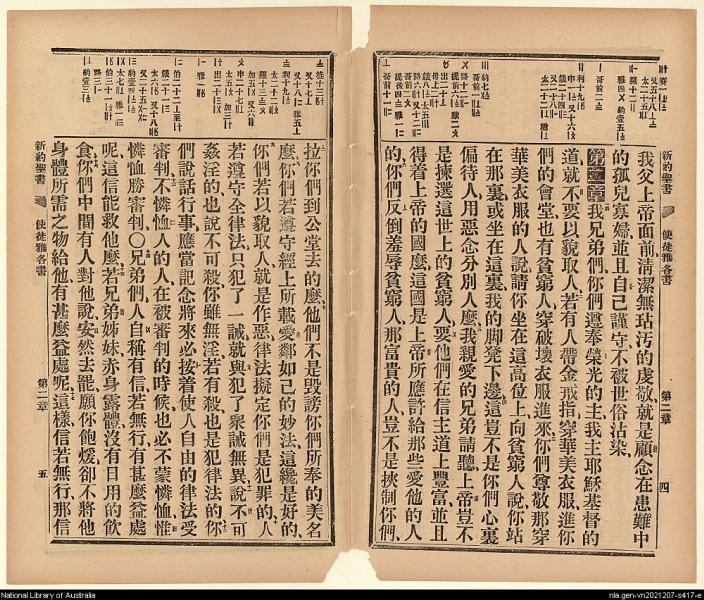 新約聖書 使徒雅各書 第二章 四
我父上帝面前清潔無玷汚的虔敬就是顧念在患難中
的孤兒寡婦並且自己謹守不被世俗沾染
第二章 我兄弟們你們遵奉榮光的主我主耶穌基督的
道就不要以貌取人若有人帶金戒指穿華美衣服進你
們的會堂也有貧窮人穿破壞衣服進來你們尊敬那穿
華美衣服的人說請你坐在這高位上向貧窮人說你站
在那裏或坐在這裏我的脚凳下邊這豈不是你們心裏
偏待人用惡念分別人麼我親愛的兄弟請聽上帝豈不
是揀選這世上的貧窮人要他們在信主道上豐富並且
得着上帝的國麼這國是上帝所應許給那些愛他的人
的你們反倒羞辱貧窮人那富貴的人豈不是挾制你們
拉你們到公堂去的麼他們不是毀謗你們所奉的美名
麼你們若遵守經上所載愛鄰如己的妙法這纔是好的
你們若以貌取人就是作惡律法擬定你們是犯罪的人
若遵守全律法只犯了一誡就與犯了衆誡無異說不可
姦淫的也說不可殺你雖無淫若有殺也是犯律法的你
們說話行事應當記念將來必按着使人自由的律法受
審判不憐恤人的人在被審判的時候也必不蒙憐恤惟
憐恤勝審判〇兄弟們人自稱有信若無行有甚麼益處
呢這信能救他麼若兄弟姊妹赤身露體沒有日用的飲
食你們中間有人對他說安然去罷願你飽煖卻不將他
身體所需之物給他有甚麼益處呢這樣信若無行那信
新約聖書 使徒雅各書 第二章 五
National Library of Australia
nla.gen-vn2021207-s417-e